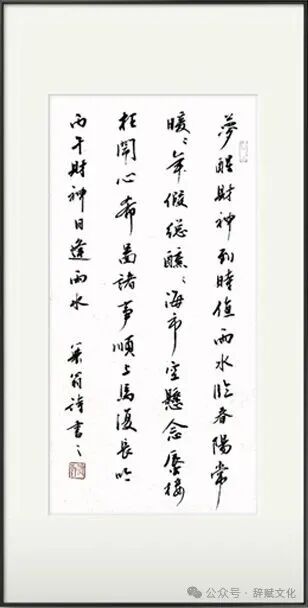 夢醒財神到時值雨水臨春陽常
暖々年假總醺々海市空懸念蜃樓
枉開心希圖諸事順与馬復長吟
丙午財神日逢雨水
翁詩書
公众号 · 辞赋文化